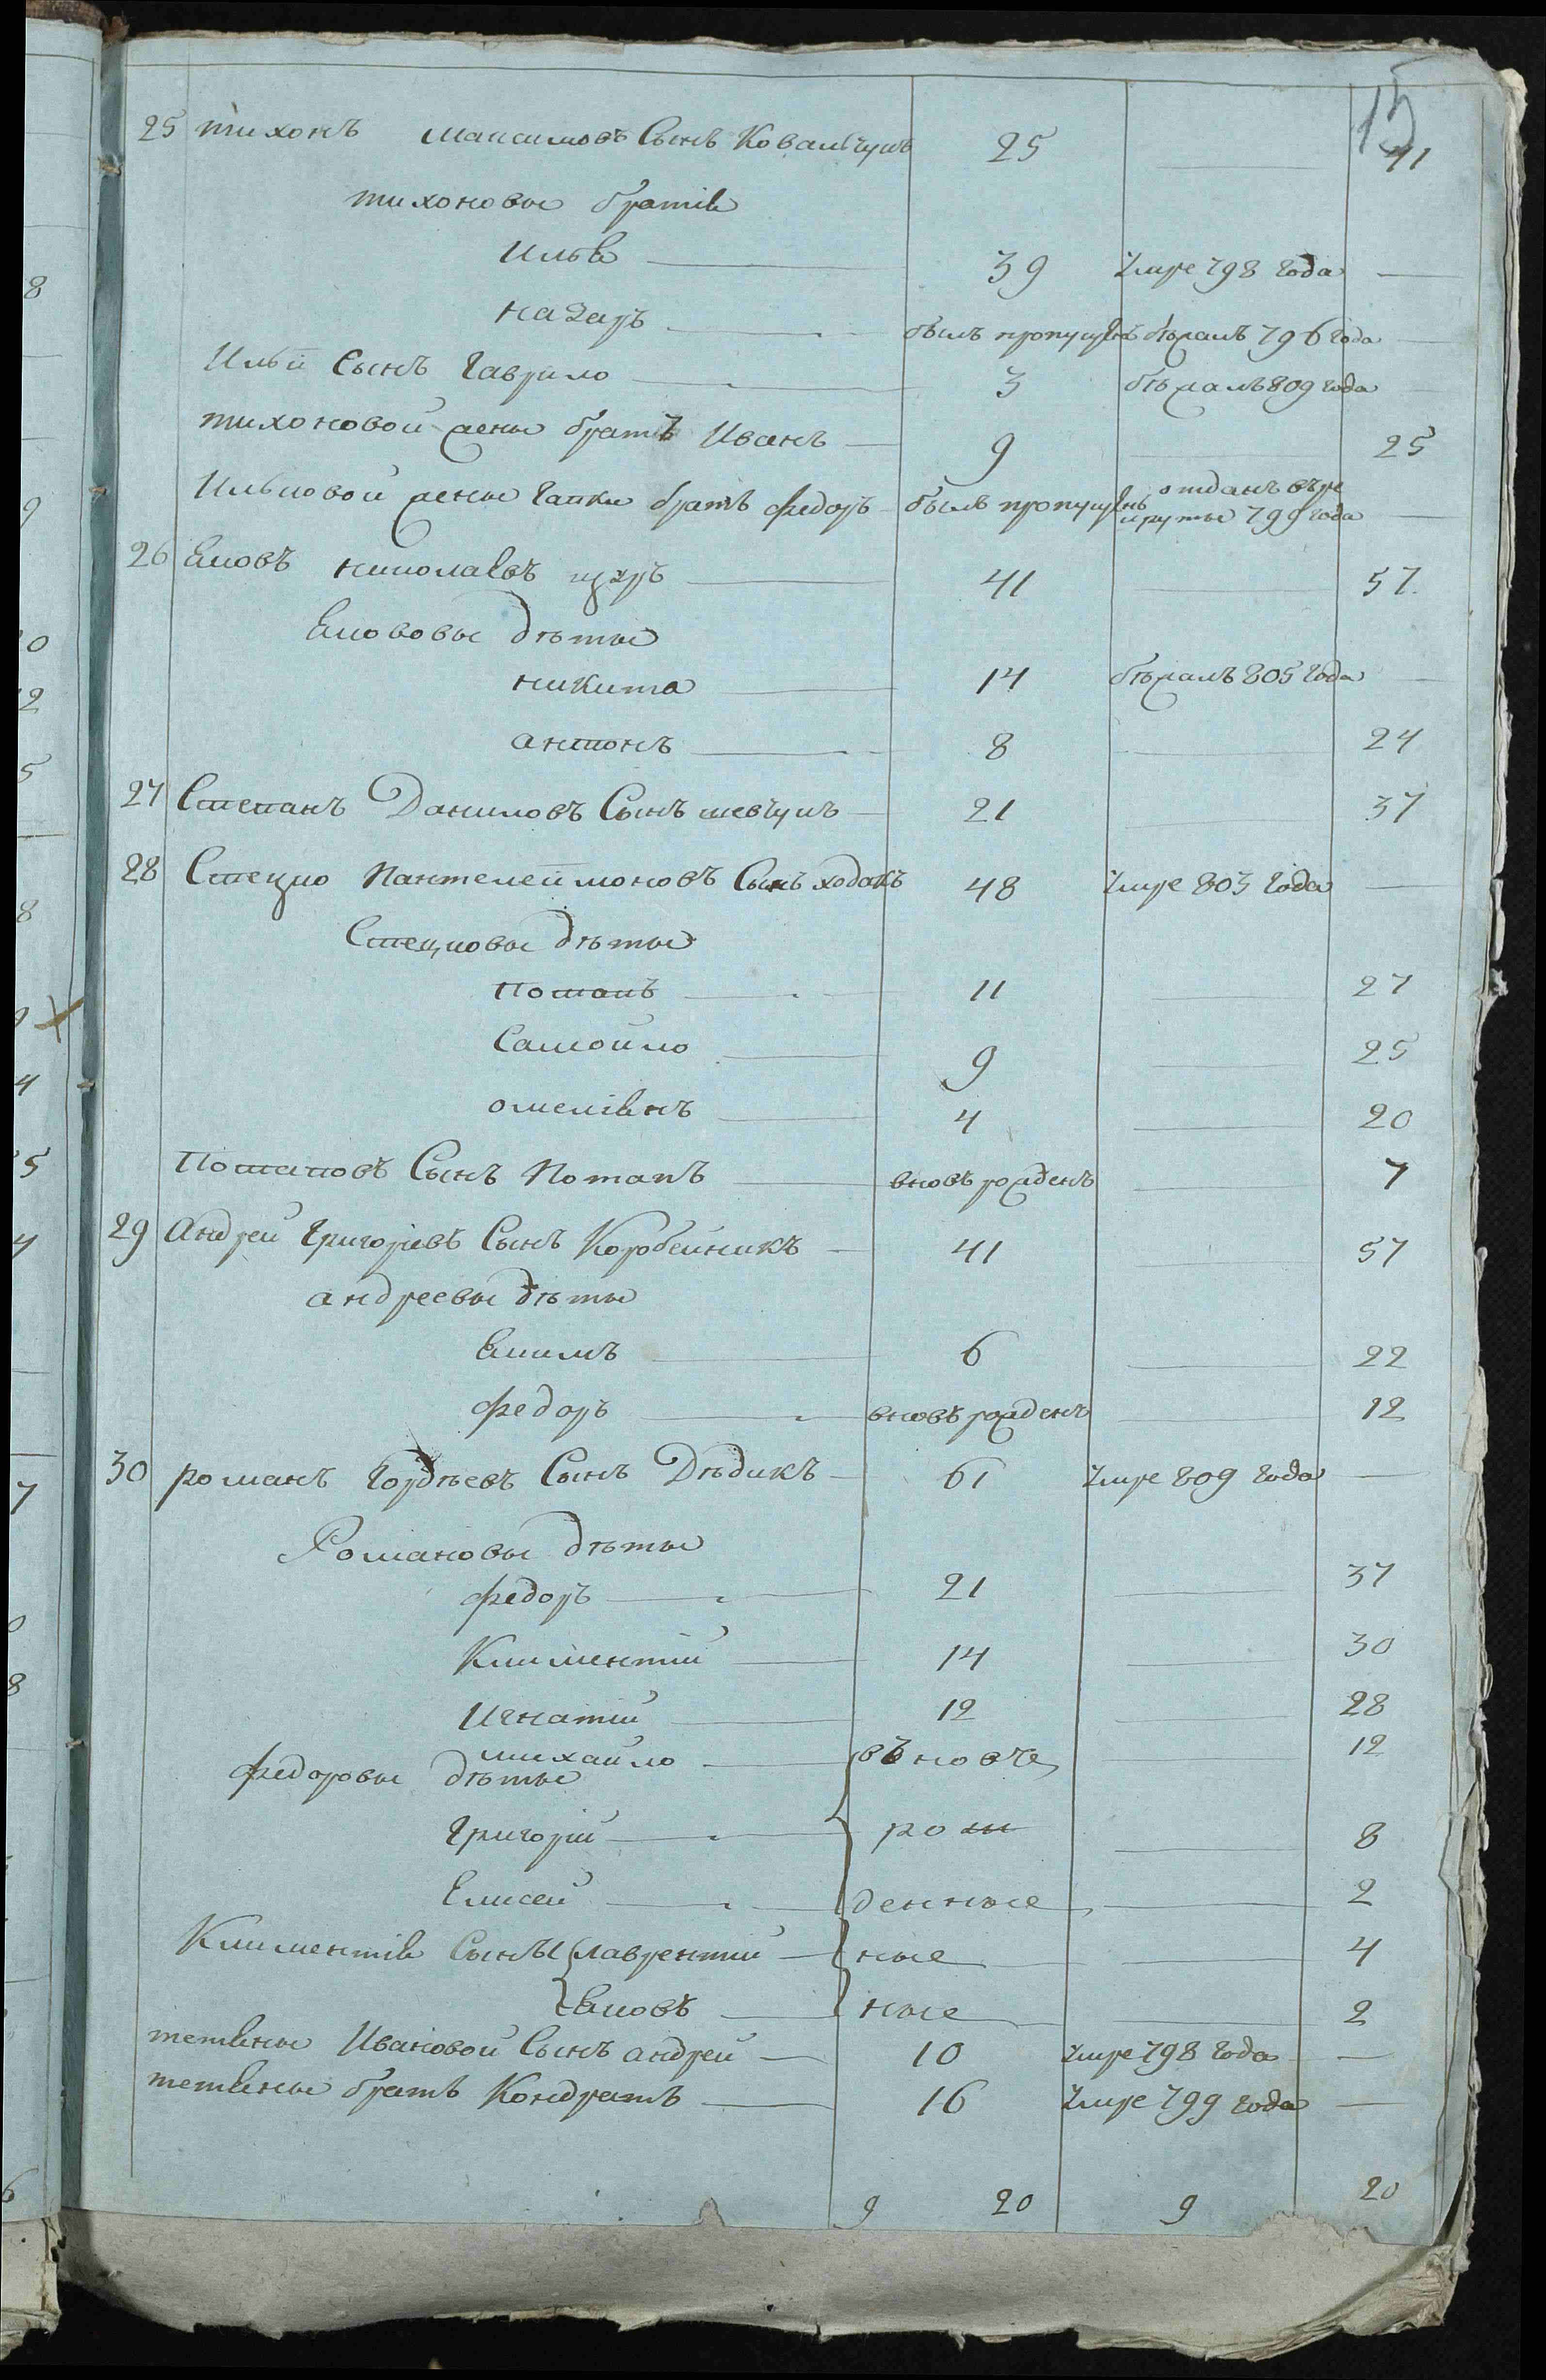 15
25 тихонъ максимовъ Сынъ Ковальчукъ 25 41
тихоновы братiя
Илья 39 Умре 798 года
назаръ былъ пропущенъ бѣжалъ 796 года
Ильи Сынъ Гаврило 3 бѣжалъ 809 года
тихоновой жены братъ Иванъ 9 25
Ильковой жены Гапки братъ федоръ былъ пропущенъ отданъ въре
круты 799 года
26 Яковъ николаевъ 41 57
Якововы дѣты
никита 14 бѣжалъ 805 года
антонъ 8 24
27 Степанъ Даниловъ Сынъ шевчукъ 21 37
28 Стецко Пантелеймоновъ Сынъ ходакъ 48 Умре 803 года
Стецковы дѣты
Потапъ 11 27
Самойло 9 25
омелiянъ 4 20
Потаповъ Сынъ Потапъ вновъ рожденъ 7
29 Андрей Григорiевъ Сынъ Коробейникъ 41 57
андреевы дѣты
Якимъ 6 22
федоръ вновъ рожденъ 12
30 романъ Гордѣевъ Сынъ Дѣдикъ 61 Умре 809 года
Романовы дѣты
федоръ 21 37
Климентiй 14 30
Игнатiй 12 28
михайло въновче 12
федоровы дѣты
Григорiй рож 8
Елисей денные 2
Климентiя Сыны лаврентiй ные 4
Яковъ ные 2
тетяны Ивановой Сынъ андрей 10 Умре 798 года
тетяны братъ Кондратъ 16 Умре 799 года
9 20 9 20